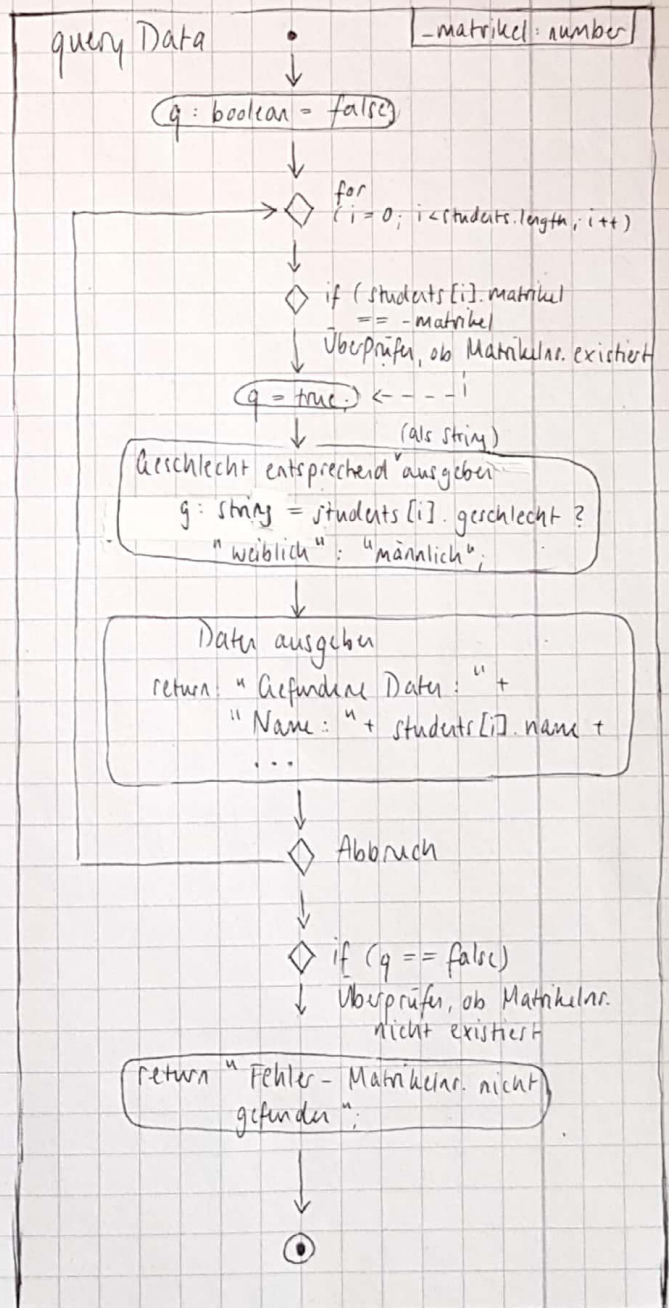 query Data
_matrikel: number
q: boolean = false;
for
(i = 0; i < students.length; i++)
if (students[i].matrikel
== _matrikel
Überprüfen, ob Matrikelnr. existiert
q = true;
(als string)
Geschlecht entsprechend ausgeben
g: string = students[i].geschlecht ?
"weiblich" : "männlich";
Daten ausgeben
return: "Gefundene Daten: " +
"Name: " + students[i].name +
...
Abbruch
if (q == false)
Überprüfen, ob Matrikelnr.
nicht existiert
return "Fehler - Matrikelnr. nicht
gefunden";